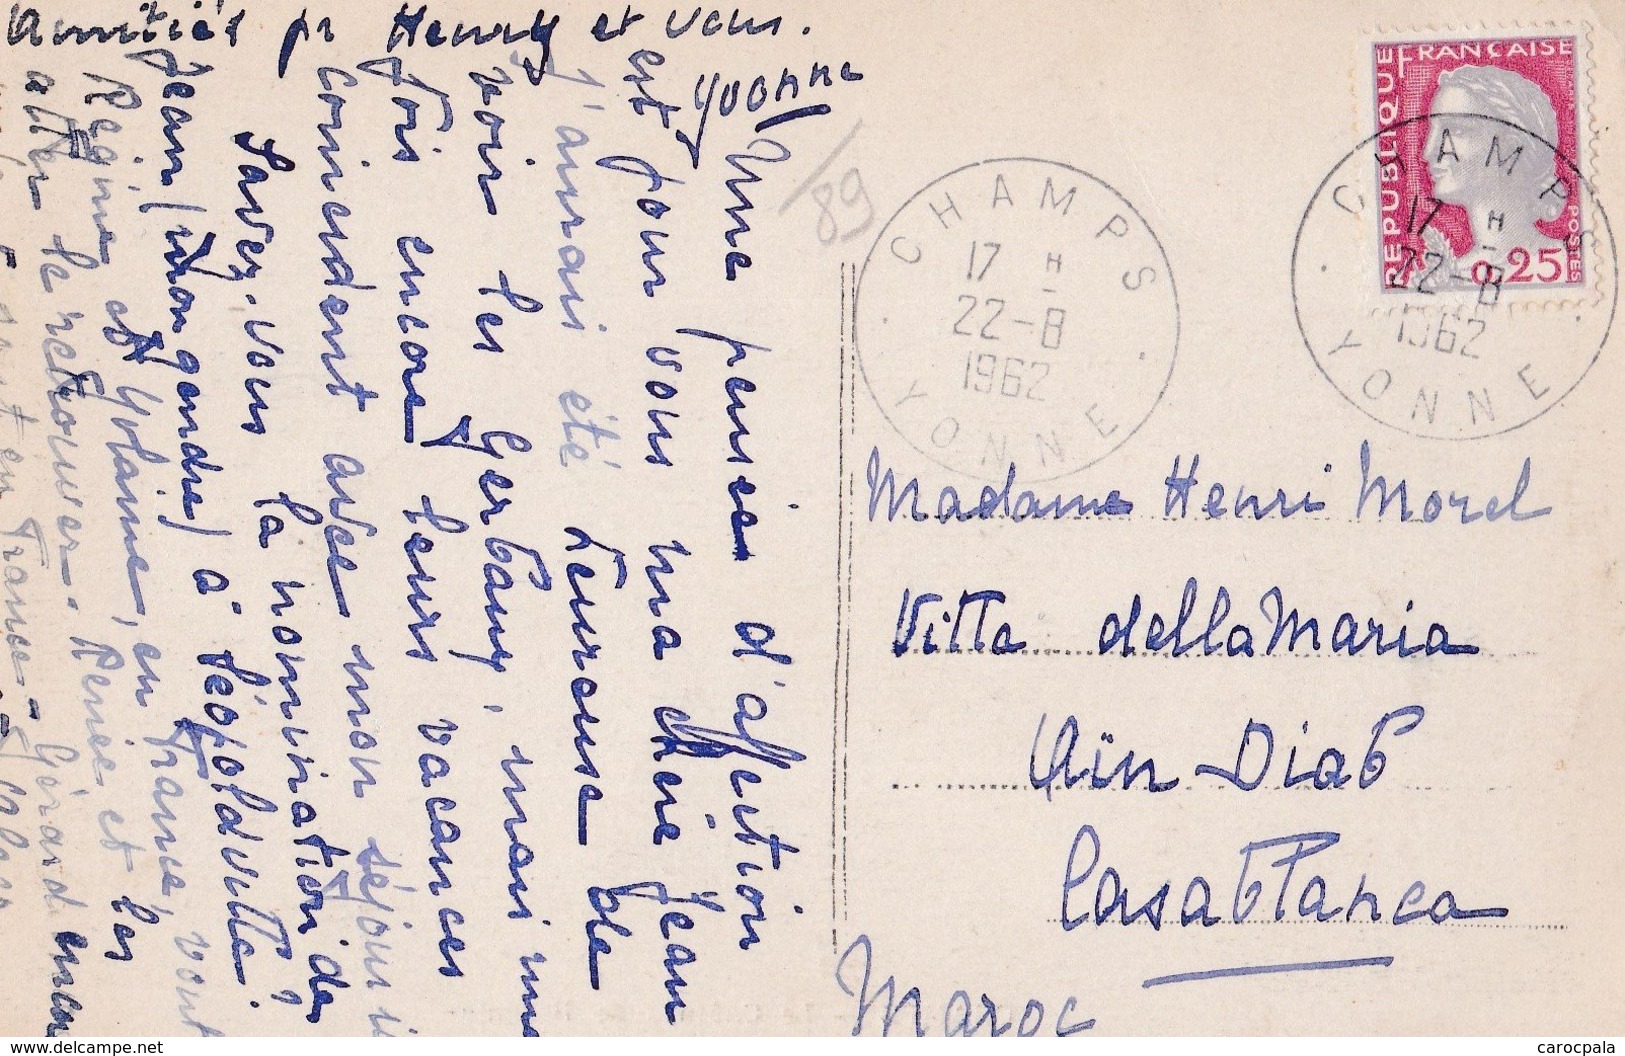 Amitiés pr Henry et vous.
Yvonne
Une pensée d'affection
est pour vous ma chère Jean
j'aurais été heureuse de
voir les Gerbauy, mais une
fois encore leurs vacances
coincident avec mon séjour ici
Savez-vous la nomination de
Jean (mon gendre) à Léopoldville.
Régine et Yolanne, en France, vont
aller le retrouver. Renée et les
sont en France - Gérard encore
/89
CHAMPS
17 H
22-8
1962
YONNE
REPUBLIQUE FRANCAISE
POSTES
0,25
CHAMPS
17 H
22-8
1962
YONNE
Madame Henri Morel
Villa della Maria
Aïn-Diab
Casablanca
Maroc
www.delcampe.net
carocpala